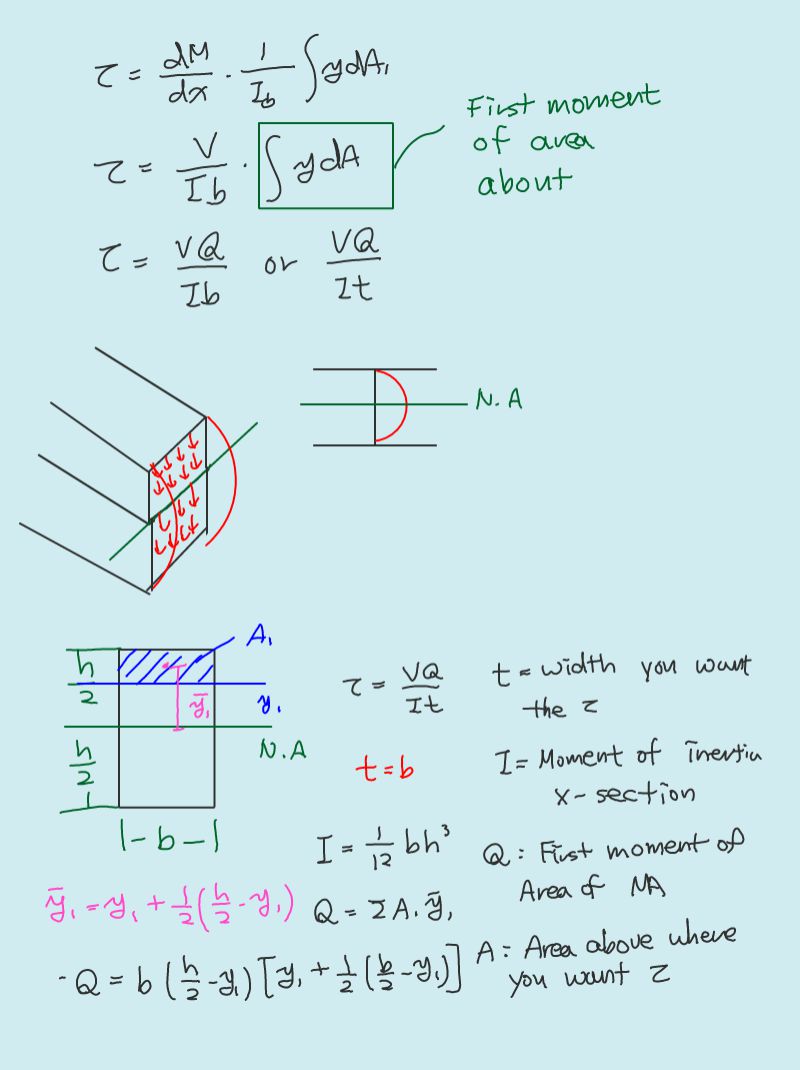 τ = dM/dx · 1/Ib ∫ydA₁
τ = V/Ib · ∫ydA
First moment
of area
about
τ = VQ/Ib or VQ/It
N.A
A₁
h/2
ȳ₁
y₁
N.A
h/2
|-b-|
τ = VQ/It
t = b
t = width you want
the τ
I = Moment of inertia
x-section
I = 1/12 bh³
Q: First moment of
Area of NA
ȳ₁ = y₁ + 1/2(h/2 - y₁)
Q = ΣA₁ȳ₁
A: Area above where
you want τ
- Q = b(h/2 - y₁)[y₁ + 1/2(b/2 - y₁)]